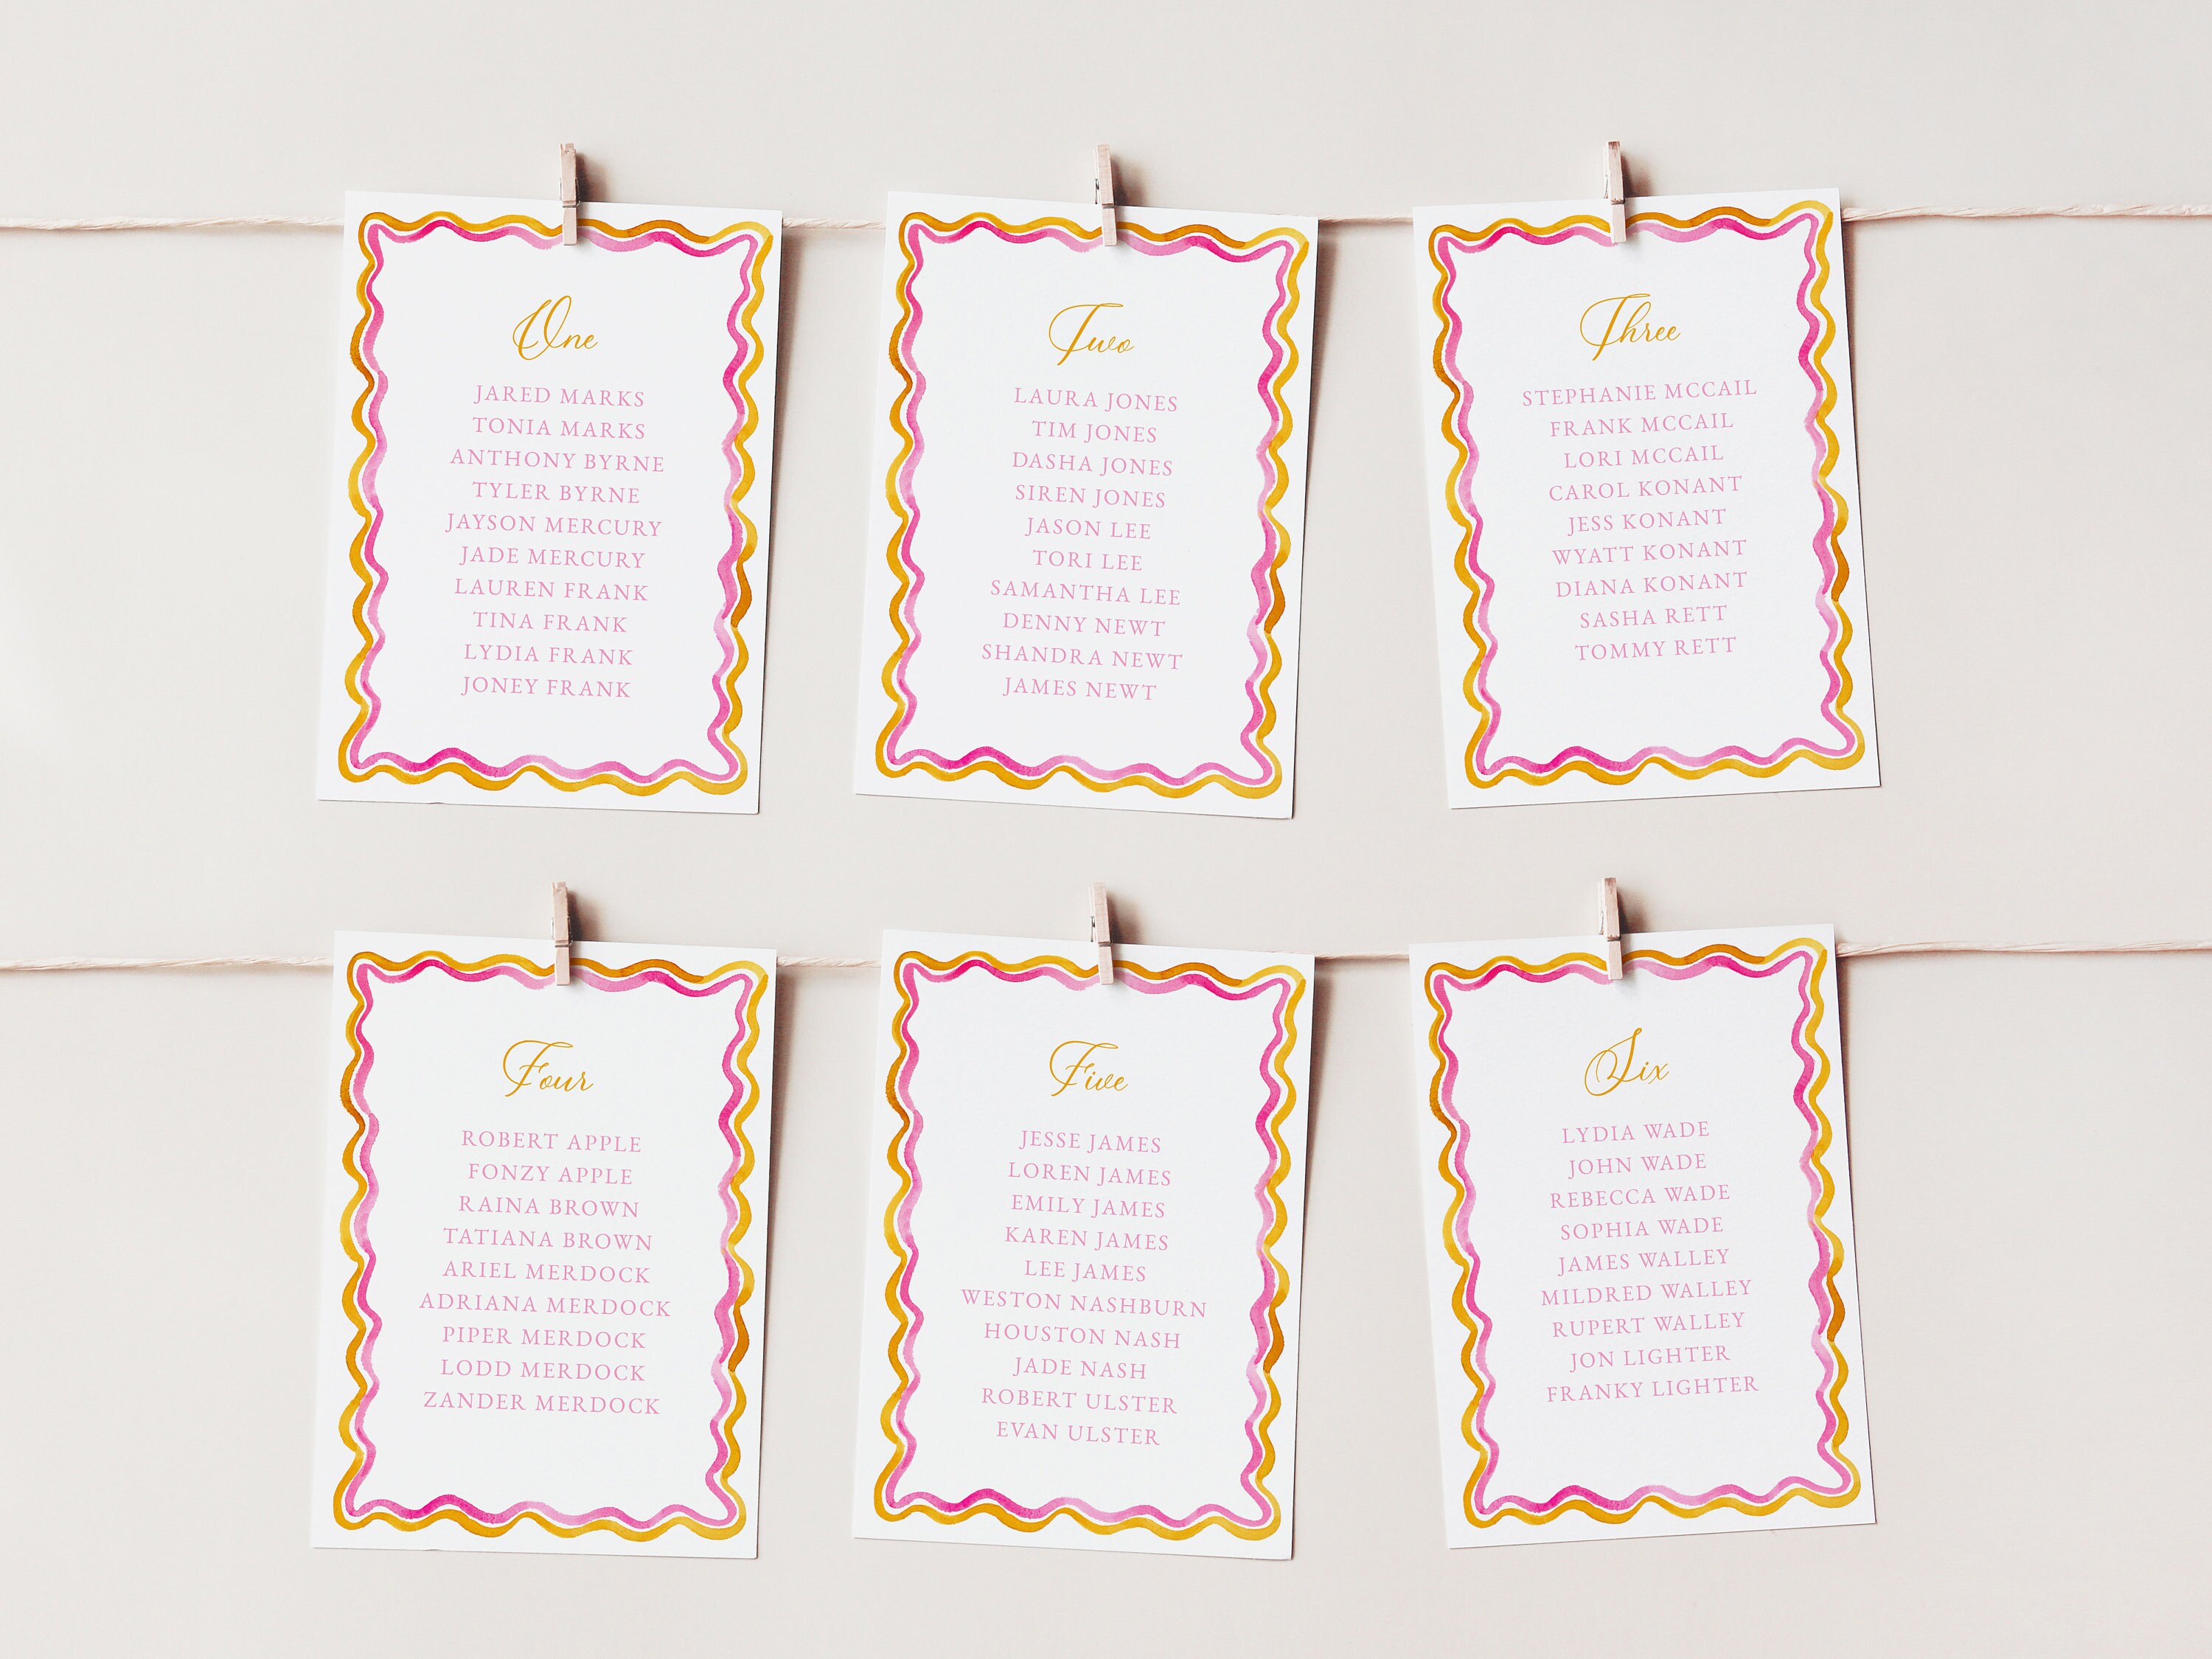 One
JARED MARKS
TONIA MARKS
ANTHONY BYRNE
TYLER BYRNE
JAYSON MERCURY
JADE MERCURY
LAUREN FRANK
TINA FRANK
LYDIA FRANK
JONEY FRANK
Two
LAURA JONES
TIM JONES
DASHA JONES
SIREN JONES
JASON LEE
TORI LEE
SAMANTHA LEE
DENNY NEWT
SHANDRA NEWT
JAMES NEWT
Three
STEPHANIE MCCAIL
FRANK MCCAIL
LORI MCCAIL
CAROL KONANT
JESS KONANT
WYATT KONANT
DIANA KONANT
SASHA RETT
TOMMY RETT
Four
ROBERT APPLE
FONZY APPLE
RAINA BROWN
TATIANA BROWN
ARIEL MERDOCK
ADRIANA MERDOCK
PIPER MERDOCK
LODD MERDOCK
ZANDER MERDOCK
Five
JESSE JAMES
LOREN JAMES
EMILY JAMES
KAREN JAMES
LEE JAMES
WESTON NASHBURN
HOUSTON NASH
JADE NASH
ROBERT ULSTER
EVAN ULSTER
Six
LYDIA WADE
JOHN WADE
REBECCA WADE
SOPHIA WADE
JAMES WALLEY
MILDRED WALLEY
RUPERT WALLEY
JON LIGHTER
FRANKY LIGHTER